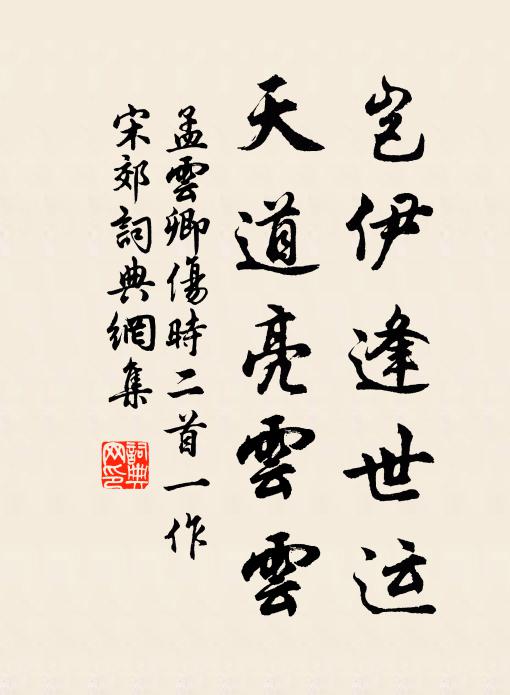 岂伊逢世运
天道亮雲雲
孟雲卿傷時二首一作
宋郊詞典網集
詞典
网印